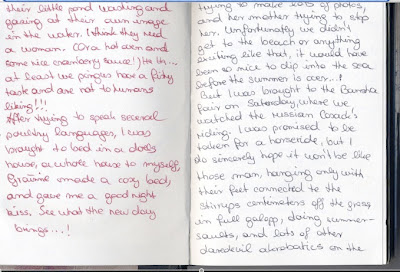 their little pond washing and
gazing at their own image
in the water. I think they need
a woman. (Or a hot oven and
some nice cranberry sauce!) Hi Hi...
at least we pingus have a fishy
taste and are not to humans
liking!!!
After trying to speak several
poultry languages, I was
brought to bed in a dolls
house, a whole house to myself,
Grainne made a cosy bed,
and gave me a good night
kiss. See what the new day
brings...!
trying to make lots of photos,
and her mother trying to stop
her. Unfortunatly we didn't
get to the beach or anything
exciting like that, it would have
been so nice to dip into the sea
before the summer is over...!
But I was brought to the
fair on Saturday, where we
watched the russian Cosack's
riding. I was promised to be
taken for a horseride, but I
do sincerely hope it won't be like
those man, hanging only with
their feet connected to the
stirrups centimeters off the grass,
in full galopp, doing summer-
saults, and lots of other
daredevil akrobatics on the